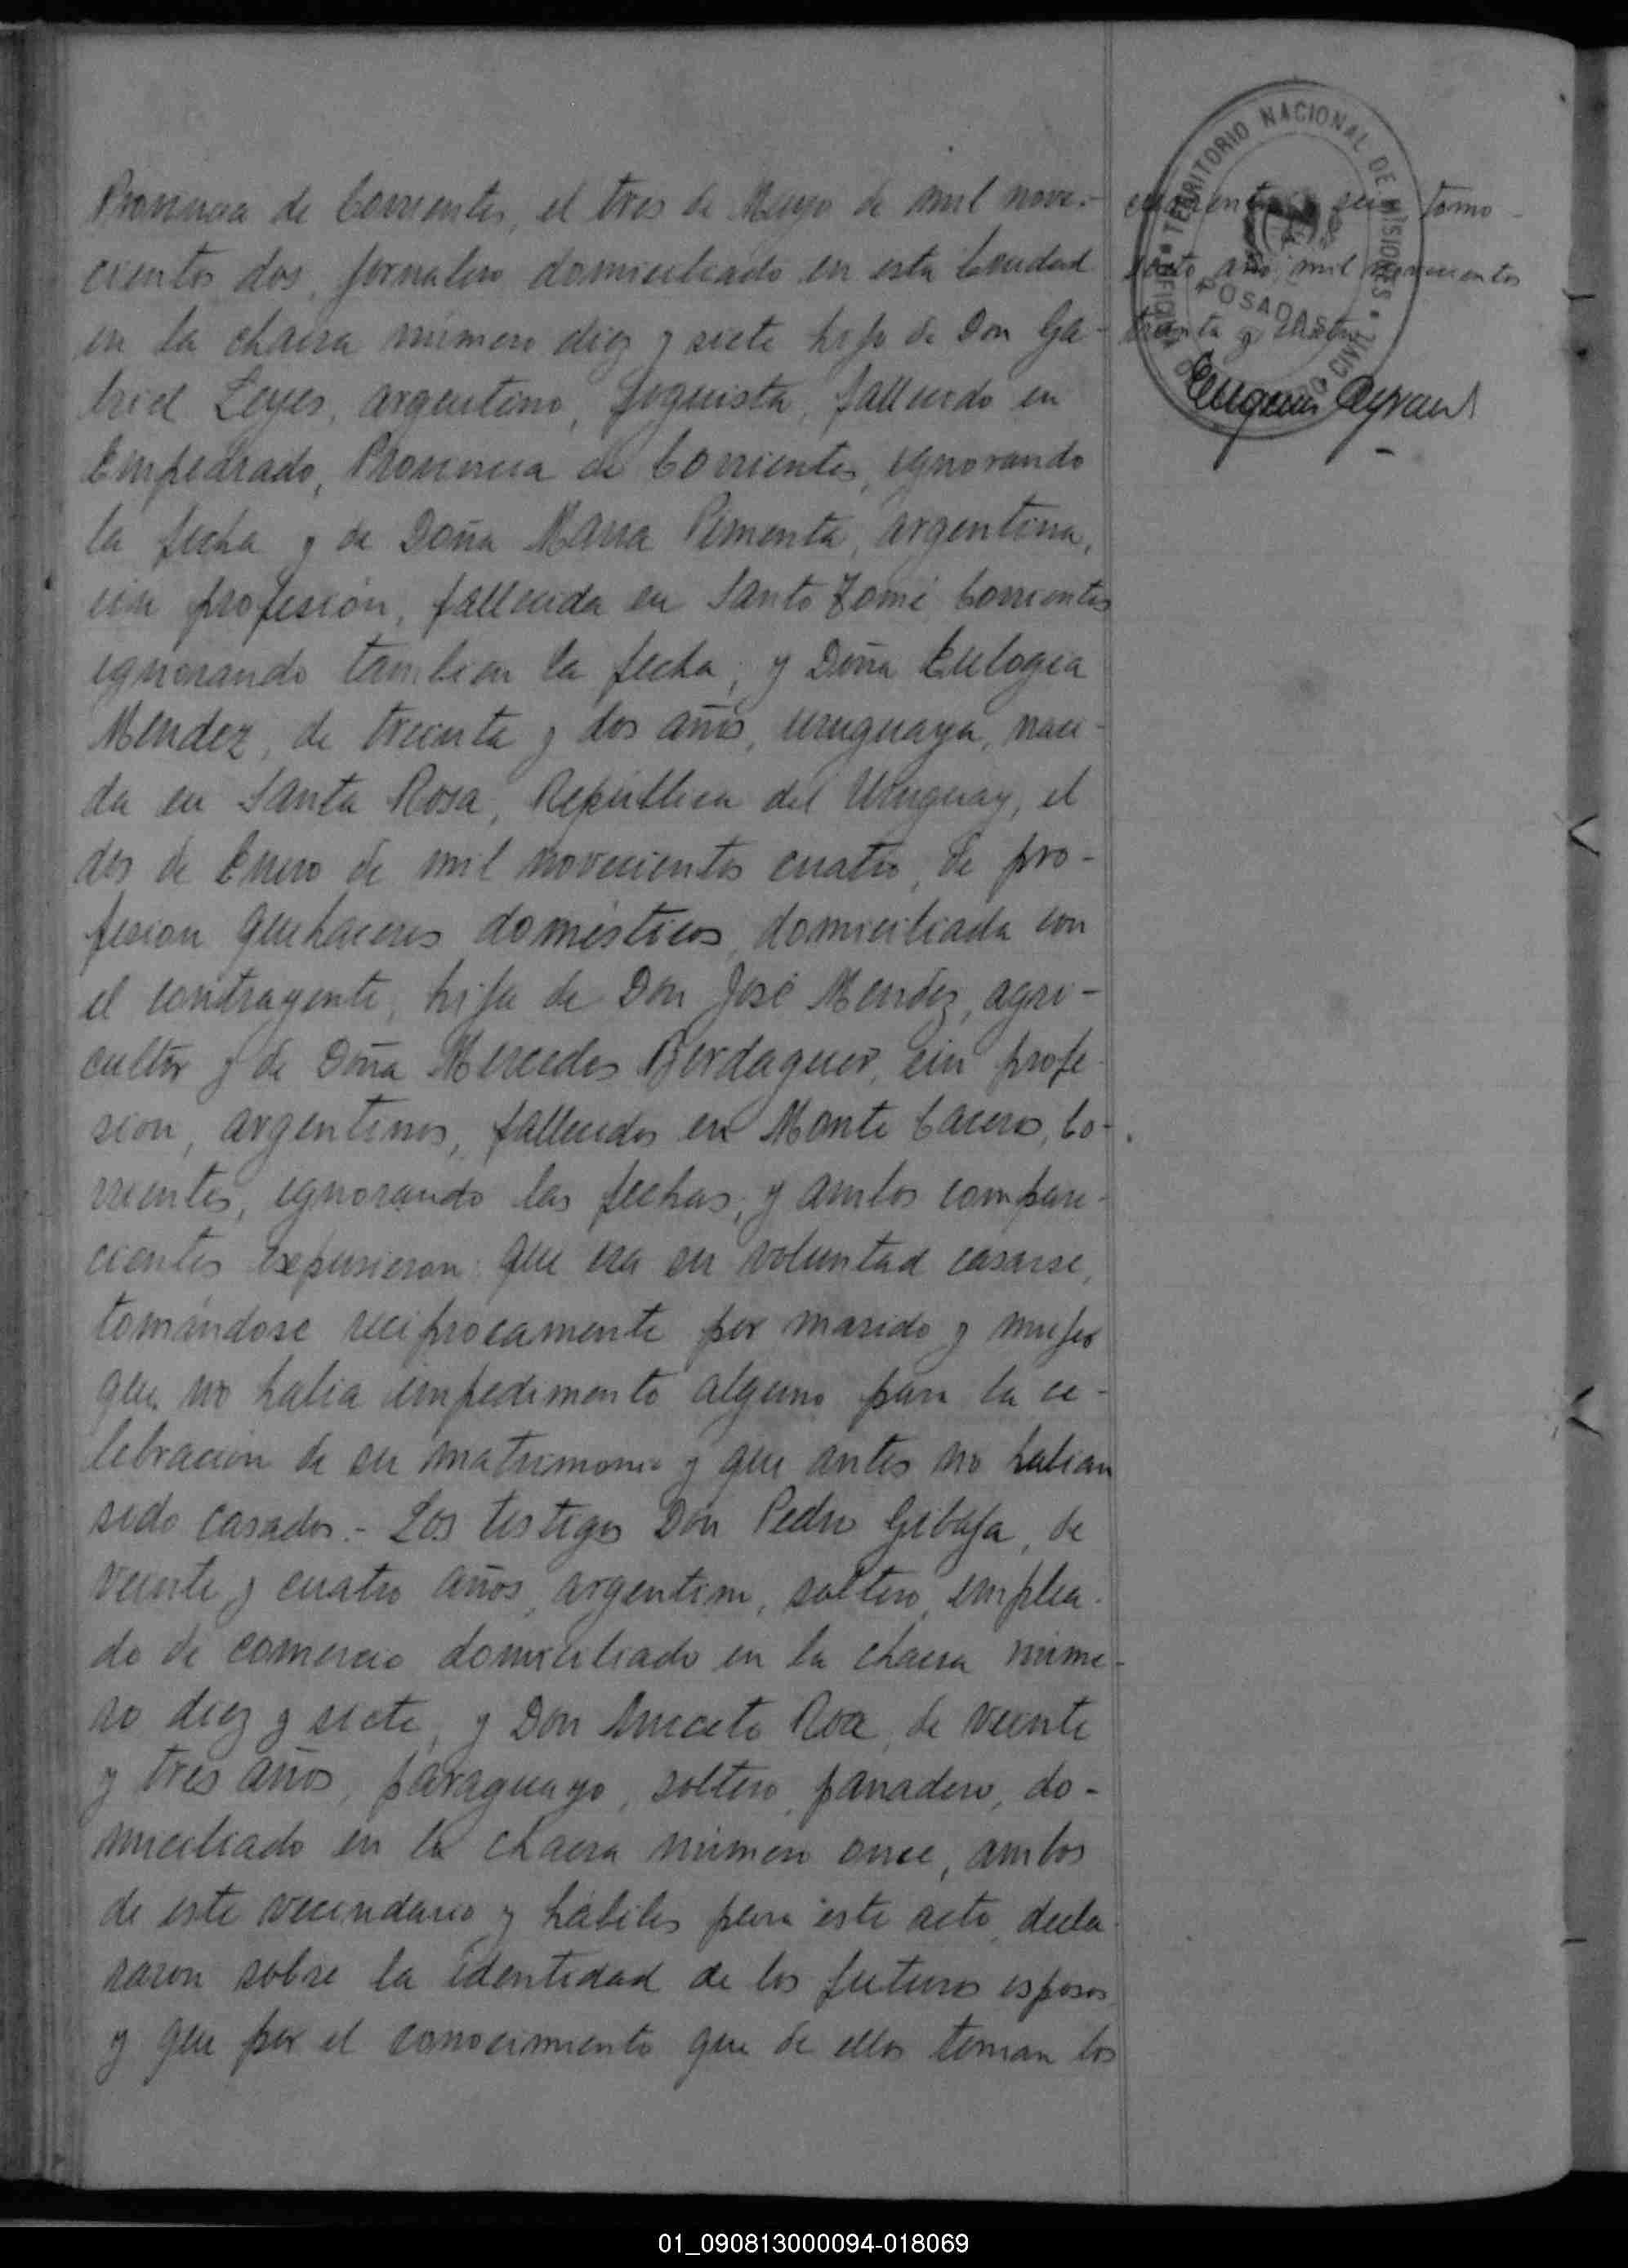 Provincia de Corrientes, el tres de Mayo de mil nove-
cientos dos, jornalero domiciliado en esta Ciudad
en la chacra número diez y siete hijo de Don Ga-
briel Leyes, argentino, foguista, fallecido en
Empedrado, Provincia de Corrientes, ignorando
la fecha y de Doña Maria Pimenta, argentina,
sin profesión, fallecida en Santo Tomé, Corrientes
ignorando tambien la fecha; y Doña Eulogia
Mendez, de treinta y dos años, uruguaya, naci-
da en Santa Rosa, República del Uruguay, el
dos de Enero de mil novecientos cuatro, de pro-
fesion quehaceres domésticos, domiciliada con
el contrayente, hija de Don José Mendez, agri-
cultor y de Doña Mercedes Berdaguer, sin profe-
sion, argentinos, fallecidos en Monte Caseros, Co-
rrientes, ignorando las fechas; y ambos compare-
cientes expusieron: que era su voluntad casarse,
tomándose reciprocamente por marido y mujer
que no habia impedimento alguno para la ce-
lebracion de su matrimonio y que antes no habian
sido casados.- Los testigos Don Pedro Gibaja, de
veinte y cuatro años, argentino, soltero, emplea-
do de comercio domiciliado en la chacra núme-
ro diez y siete, y Don Aniceto Roa, de veinte
y tres años, paraguayo, soltero, panadero, do-
miciliado en la chacra número once, ambos
de este vecindario y hábiles para este acto, decla-
raron sobre la identidad de los futuros esposos
y que por el conocimiento que de ellos tenian los
tomo
año mil novecientos
treinta y
TERRITORIO NACIONAL DE MISIONES
POSADAS
CIVIL
01_090813000094-018069